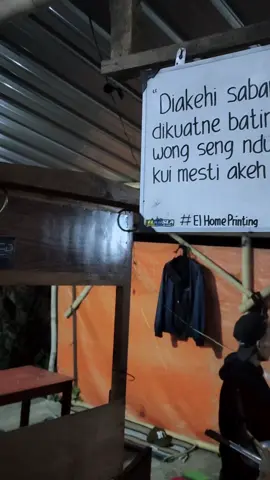 "Diakehi sabar
dikuatne batin
wong seng ndu
kui mesti akeh
# E1 Home Printing